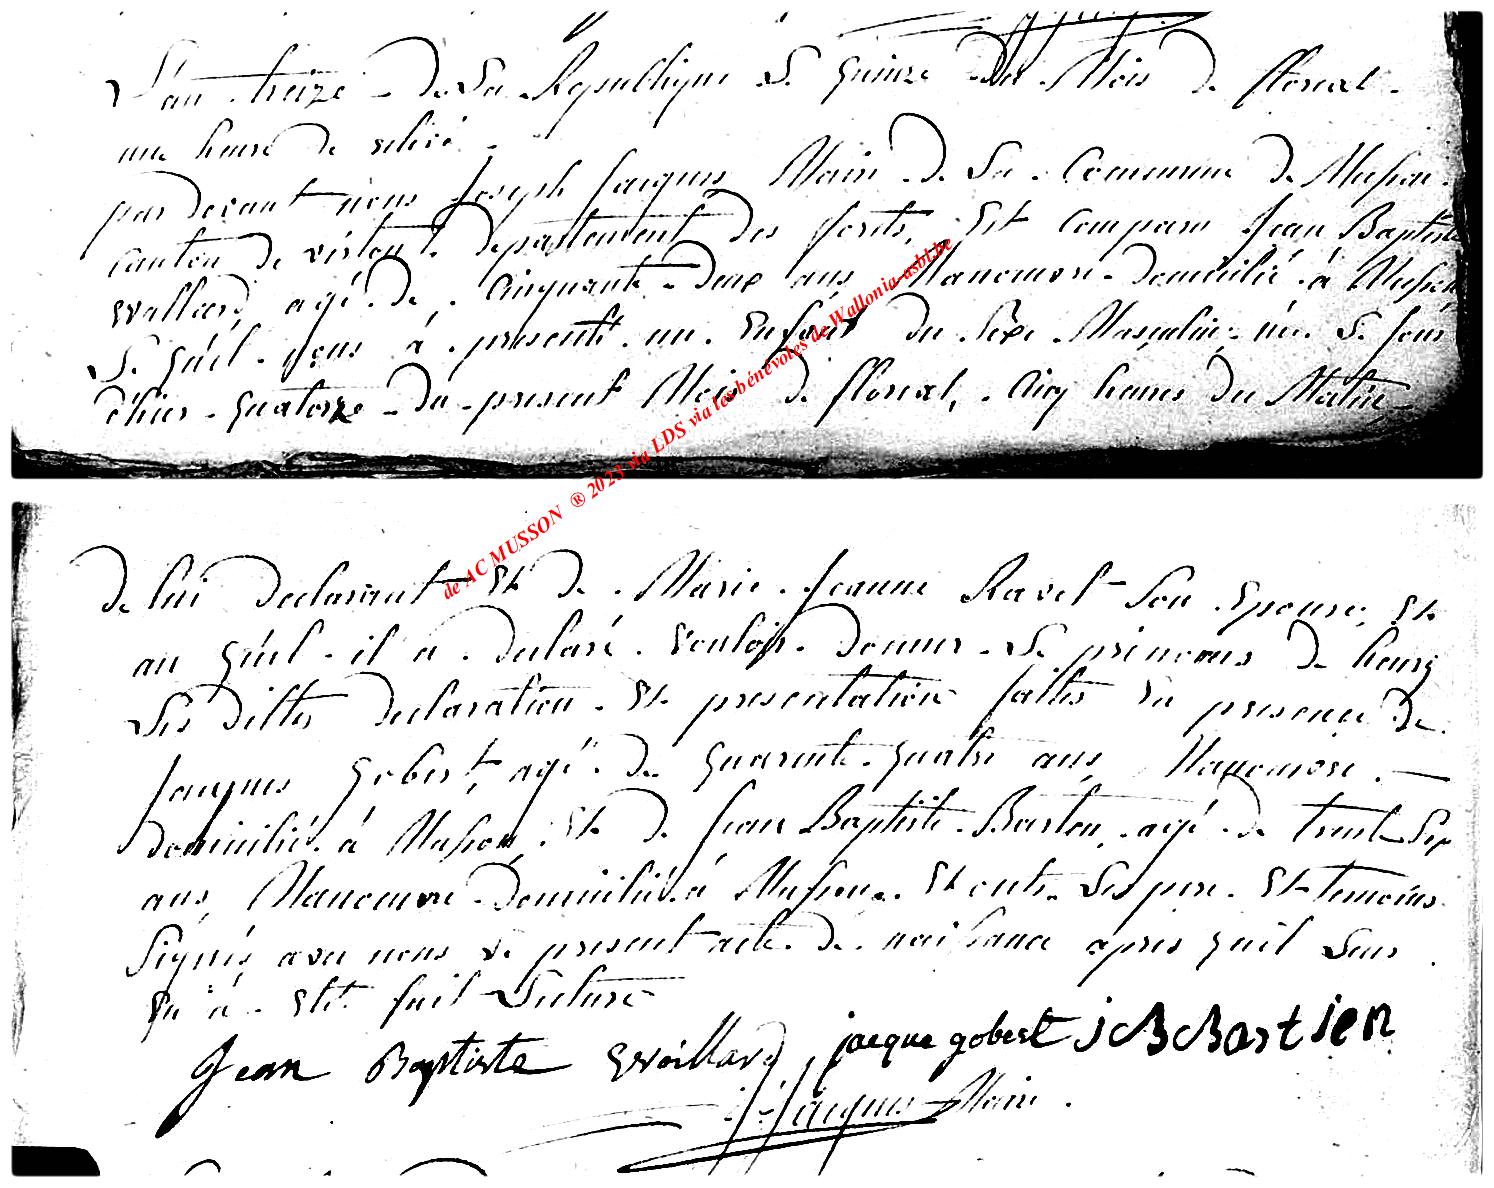 L'an treize de La Republique Le Quinze du Mois de floreal
une heure de relevé
par devant nous Joseph Jacques Maire de La Commune de Musson
canton de virton departement des forets, Est comparu Jean Baptiste
willard agé de cinquante deux ans Manoeuvre domicilié à Musson
Le Quel nous à presenté un Enfant du Sexe Masculin né Le jour
d'hier Quatorze du present Mois de floreal, cinq heures du Matin
de AC MUSSON ® 2023 via LDS via les bénévoles de Wallonia-asbl.be
de lui declarant Et de Marie Jeanne Ravet Son Epouse, Et
au Quel il a declaré Vouloir donner Le prenoms de henry
Les dittes declaration Et presentation faittes En presence de
Jacques Gobert, agé de Quarente Quatre ans Manoeuvre
domicilié à Musson, Et de Jean Baptiste Bastien, agé de trente Sept
ans, Manoeuvre domicilié à Musson Et ont Les pere Et temoins
Signés avec nous Le present acte de naissance apres Quil Leur
En à Eté fait Lecture
Jean Baptiste Woillard jacque gobert j B Bastien
J: Jacques Maire